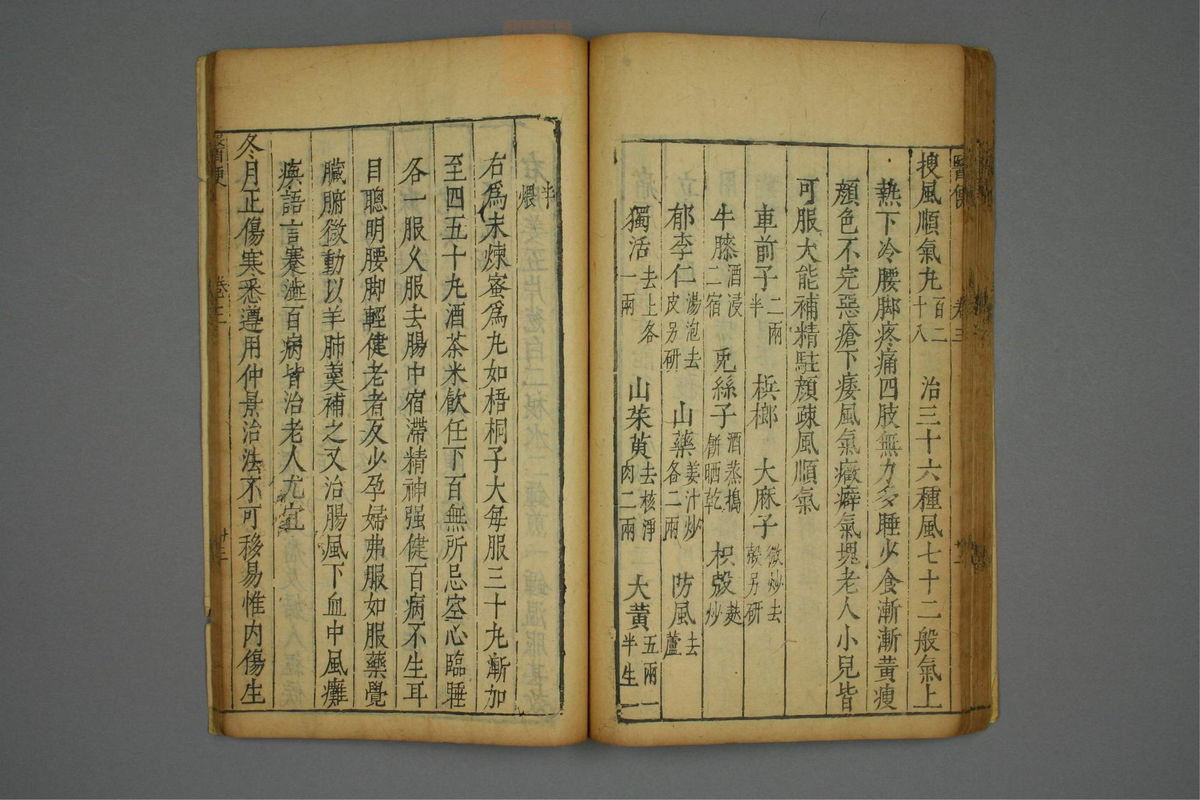 醫便 卷三
搜風順氣丸百二十八 治三十六種風七十二般氣上
熱下冷腰脚疼痛四肢無力多睡少食漸漸黃瘦
顏色不完惡瘡下痿風氣癥癖氣塊老人小兒皆
可服大能補精駐顏疎風順氣
車前子二兩半 梹榔 大麻子微炒去殼另研
牛膝酒浸二宿 兎絲子酒蒸搗餅晒乾 枳殼麩炒
郁李仁湯泡去皮另研 山藥姜汁炒各二兩 防風去蘆
獨活去上各一兩 山茱萸去核淨肉二兩 大黃五兩一半生
半煨
右爲末煉蜜爲丸如梧桐子大每服三十丸漸加
至四五十丸酒茶米飲任下百無所忌空心臨睡
各一服久服去腸中宿滯精神强健百病不生耳
目聰明腰脚輕健老者反少孕婦弗服如服藥覺
臟腑微動以羊肺羹補之又治腸風下血中風癱
瘓語言蹇澁百病皆治老人尤宜
冬月正傷寒悉遵用仲景治法不可移易惟内傷生
醫便 卷三 廿三